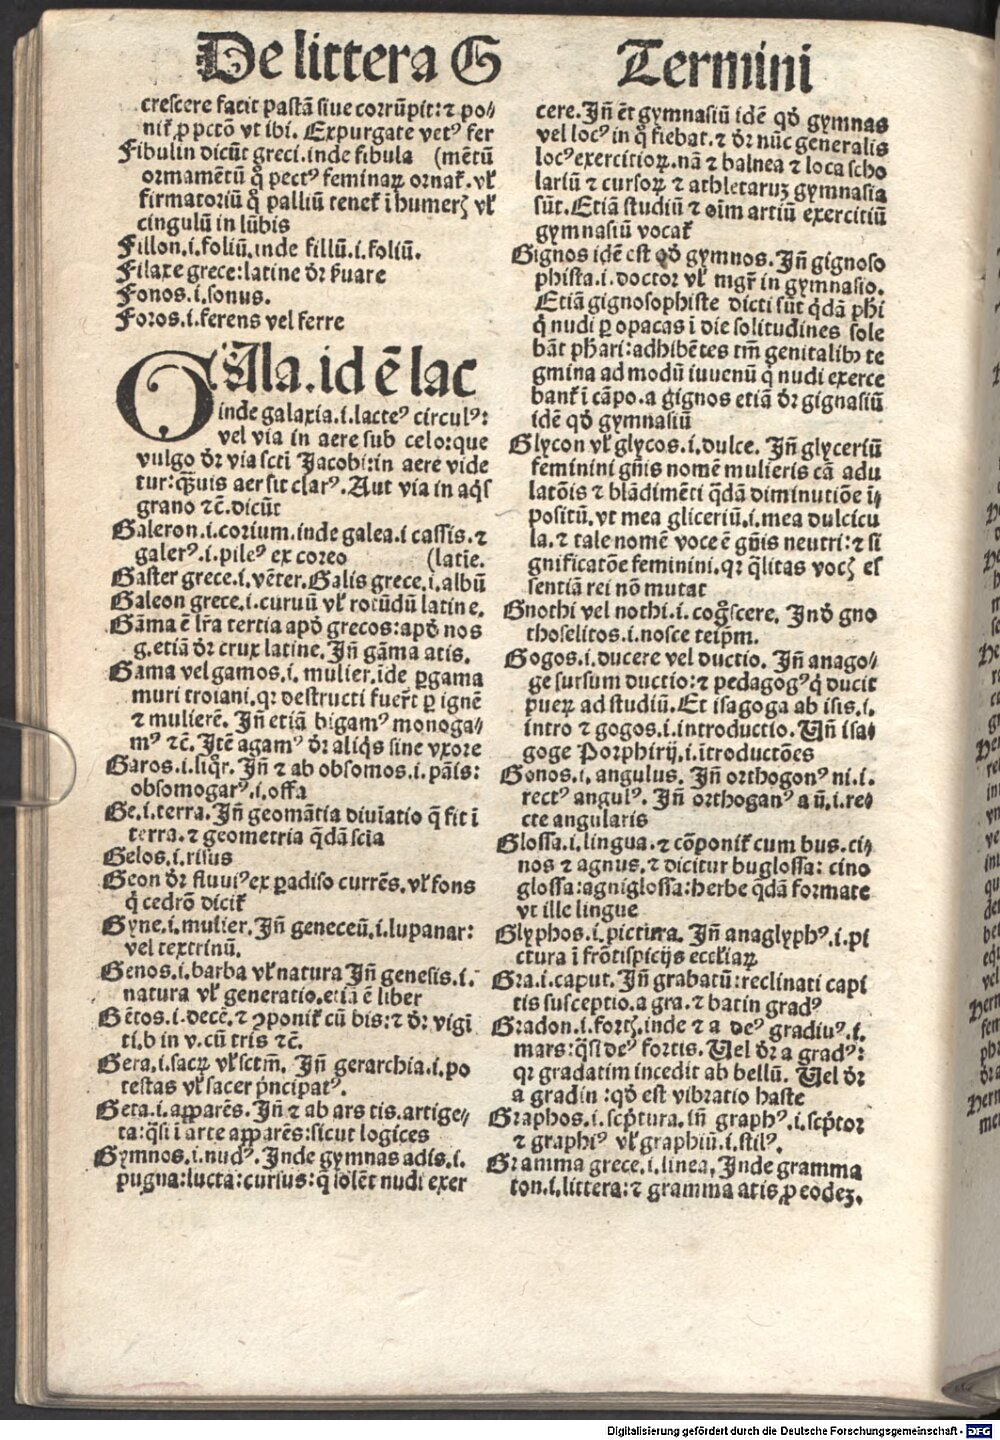 De littera G
Termini
crescere facit pastā siue corrūpit: ⁊ po⸗
nit᷑ ꝓ pctō vt ibi. Expurgate vetꝰ fer
Fibulin dicūt greci. inde fibula (mētū
ormamētū q̊ pectꝰ feminaꝝ ornat᷑. vl̕
firmatoriū q̊ palliū tenet᷑ ī humerꝭ vl̕
cingulū in lūbis
Fillon .i. foliū. inde fillū .i. foliū.
Filaxe grece: latine dr̄ ẜuare
Fonos .i. sonus.
Foros .i. ferens vel ferre
GAla. id ē lac
inde galaxia .i. lacteꝰ circulꝰ:
vel via in aere sub celo: que
vulgo dr̄ via scti Jacobi: in aere vide
tur: qͣꝫuis aer sit clarꝰ. Aut via in aq̄s
grano ⁊c̄. dicūt
Galeron .i. corium. inde galea .i cassis. ⁊
galerꝰ .i. pileꝰ ex coreo (latīe.
Gaster grece .i. vēter. Galis grece .i. albū
Galeon grece .i. curuū vl̕ rotūdū latine.
Gāma ē lr̄a tertia apd̕ grecos: apd̕ nos
g. etiā dr̄ crux latine. Jn̄ gāma atis.
Gama vel gamos .i. mulier. ide ꝑgama
muri troiani. qꝛ destructi fuer̄t ꝑ ignē
⁊ mulierē. Jn̄ etiā bigamꝰ monoga⸗
mꝰ ⁊c̄. Jtē agamꝰ dr̄ aliq̄s sine vxore
Garos .i. liq̊r. Jn̄ ⁊ ab obsomos .i. pāis:
obsomogarꝰ .i. offa
Ge .i. terra. Jn̄ geomātia diuīatio q̄ fit ī
terra. ⁊ geometria q̄dā scīa
Gelos .i. risus
Geon dr̄ fluuiꝰ ex ꝑadiso currēs. vl̕ fons
q̄ cedrō dicit᷑
Gyne .i. mulier. Jn̄ geneceū .i. lupanar:
vel textrinū.
Genos .i. barba vl̕ natura Jn̄ genesis .i.
natura vl̕ generatio. etiā ē liber
Gētos .i. decē. ⁊ ꝯponit᷑ cū bis: ⁊ dr̄ vigī
ti. b in v. cū tris ⁊c̄.
Gera .i. sacꝝ vl̕ sctm̄. Jn̄ gerarchia .i. po
testas vl̕ sacer pͥncipatꝰ.
Geta .i. aꝑparēs. Jn̄ ⁊ ab ars tis. artige⸗
ta: q̄si ī arte aꝑparēs: sicut logices
Gymnos .i. nudꝰ. Jnde gymnas adis .i.
pugna: lucta: cursus: q̄ solēt nudi exer
cere. Jn̄ ēt gymnasiū idē qd̕ gymnas
vel locꝰ in q̊ fiebat. ⁊ dr̄ nūc generalis
locꝰ exercitioꝝ. nā ⁊ balnea ⁊ loca scho
lariū ⁊ cursoꝝ ⁊ athletaruꝫ gymnasia
sūt. Etiā studiū ⁊ oīm artiū exercitiū
gymnasiū vocat᷑
Gignos idē est qd̕ gymnos. Jn̄ gignoso
phista .i. doctor vl̕ mgr̄ in gymnasio.
Etiā gignosophiste dicti sūt q̄dā phi
q̄ nudi ꝑ opacas ī die solitudines sole
bāt phari: adhibētes tm̄ genitalibꝰ te
gmina ad modū iuuenū q̄ nudi exerce
bant᷑ ī cāpo. a gignos etiā dr̄ gignasiū
idē qd̕ gymnasiū
Glycon vl̕ glycos .i. dulce. Jn̄ glyceriū
feminini gn̄is nomē mulieris cā adu
latōis ⁊ blādimēti q̄dā diminutiōe ī⸗
positū. vt mea gliceriū .i. mea dulcicu
la. ⁊ tale nomē voce ē gn̄is neutri: ⁊ si
gnificatōe feminini. qꝛ q̄litas vocꝭ es
sentiā rei nō mutat
Gnothi vel nothi .i. cog̊scere. Jnd̕ gno
thoselitos .i. nosce teip̄m.
Gogos .i. ducere vel ductio. Jn̄ anago⸗
ge sursum ductio: ⁊ pedagogꝰ q̄ ducit
pueꝝ ad studiū. Et isagoga ab isis .i.
intro ⁊ gogos .i. introductio. Vn̄ isa⸗
goge Porphirij .i. ītroductōes
Gonos .i. angulus. Jn̄ orthogonꝰ ni .i.
rectꝰ angulꝰ. Jn̄ orthoganꝰ a ū .i. re⸗
cte angularis
Glossa .i. lingua. ⁊ cōponit᷑ cum bus. ci⸗
nos ⁊ agnus. ⁊ dicitur buglossa: cino
glossa: agniglossa: herbe q̄dā formate
vt ille lingue
Glyphos .i. pictura. Jn̄ anaglyphꝰ .i. pi
ctura ī frōtispicijs eccl̕iaꝝ
Gra .i. caput. Jn̄ grabatū: reclinati capi
tis susceptio. a gra. ⁊ batin gradꝰ
Gradon .i. fortꝭ. inde ⁊ a deꝰ gradiuꝰ .i.
mars: q̄si deꝰ fortis. Vel dr̄ a gradꝰ:
qꝛ gradatim incedit ab bellū. Vel dr̄
a gradin: qd̕ est vibratio haste
Graphos .i. scpͥtura. in̄ graphꝰ .i. scpͥtor
⁊ graphiꝰ vl̕ graphiū .i. stilꝰ.
Gramma grece .i. linea. Jnde gramma
ton .i. littera: ⁊ gramma atis ꝓ eodeꝫ.
Digitalisierung gefördert durch die Deutsche Forschungsgemeinschaft - DFG